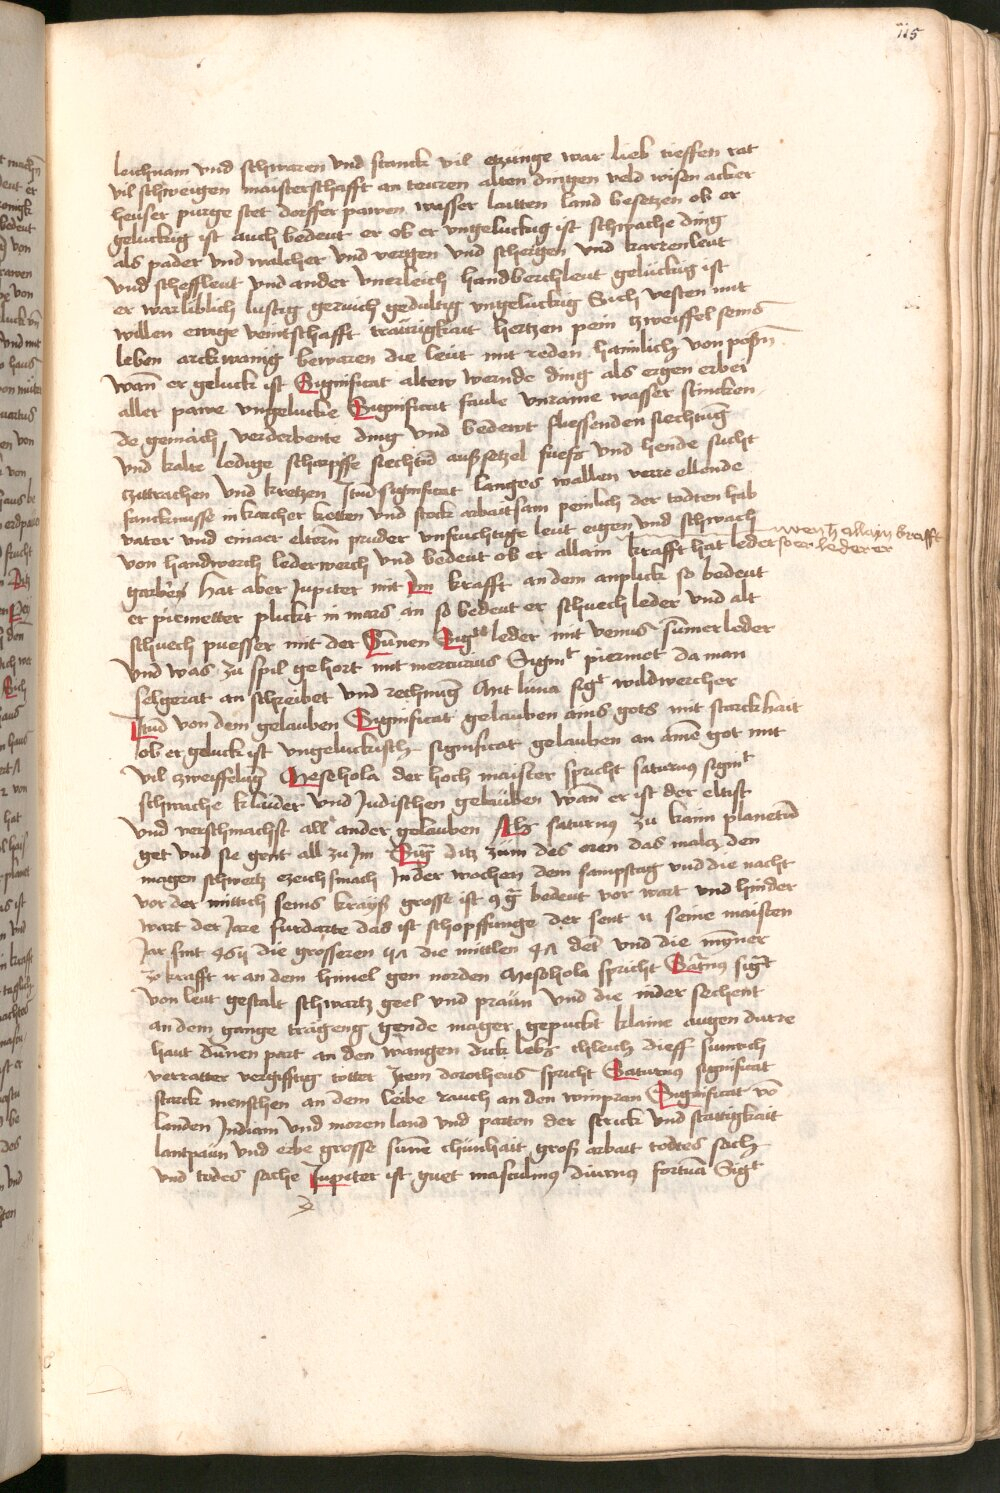 115
leichnam vnd schwaren vnd stanck vil etzunge war lieb tieffen rat
vil schweigen maisterschafft an teuren alten dingen veld wisen acker
heuser purge stet dorffer pawen wasser laitten land besetzen ob er
geluckig ist auch bedeut er ob er vngeluckig ist schwache ding
als pader vnd walcher vnd vergen vnd schergen vnd karrenleut
vnd scheffleut vnd ander vnerleich handberchleut gelückig ist
er warliblich lustig geruich gedultig vngeluckig Sich vesten mit
willen ewige veintschafft traurigkait hertzen pein zweiffel seins
leben arckwanig bewaren die leut mit reden hamlich von posñ
wañ er geluck ist Significat altew wernde ding als ergen erbei
aller pawe vngelucke Significat faule vnraine wasser stincken
de gemach verderbente ding vnd bedewt fliessenden siechtug
vnd kalte ledige scharpffe siechtũ außsetzel fuess vnd hende sucht
zittrachen vnd kretzen Itud significat langes wallen verre ellende
fancknusse in karcher ketten vnd stock arbaitsam peinlich der todten hab
vater vnd einaer elterñ pruder vnfruchtige leut eigen vnd schwach
von handwerch lederwerch vnd bedeut ob er allain krafft hat leder
wenn allain krafft
so er lederer er
garben hat aber Jupiter mit Im krafft an dem anplick so bedeut
er piemetter pluckt in mars an so bedeut er schuech leder vnd alt
schuech puesser mit der Sunnen Sigt leder mit venus sumer leder
vnd was zu spil gehort mit mercurius Signit piermet da man
selgerat an schreibet vnd rechnug Ant luna sigt wildwercher
Itud von dem gelauben Significat gelauben ains gots mit starckhait
ob er geluck ist vngeluckisch significat gelauben an aine got mit
vil zweiffelug Mesehola der hoch maister spricht saturnus signit
schwache klaider vnd Judischen gelauben wañ er ist der eltist
vnd verschmachst all ander gelauben Als saturnus zu kaim planetñ
get vnd sie gent all zu Im Sig ditz zum des oren das maltz den
magen schwertz ezeich smach In der wochen dem sampstag vnd die nacht
vor der mittich seins krayß grosse ist 9 g bedeut vor wart vnd hinder
wart der Jare furdarte das ist schopffunge der sent 11 seine maisten
Jar sint 46ij die grosseren 4A die mittlen 4A det vnd die myner
30 krafft ir an dem himel gen norden Mesehola spricht Saturnus sigt
von leut gestalt schwartz geel vnd praun vnd die nider sechent
an dem gange trageng gende mager gepuckt klaine augen durre
haut dunen part an den wangen dick lebs chleich dieff sinnrich
verratter vergifftig tottet Item dorotheus spricht Saturnus significat
starck menschen an dem leibe rauch an den wimpran Significat võ
landen Indiam vnd moren land vnd parton der strick vnd stattigkait
lantpaun vnd erbe grosse sune chunhait groß arbait todtes sach
vnd todes sache Jupiter ist guet masculinus diurnus fortuna Sigt